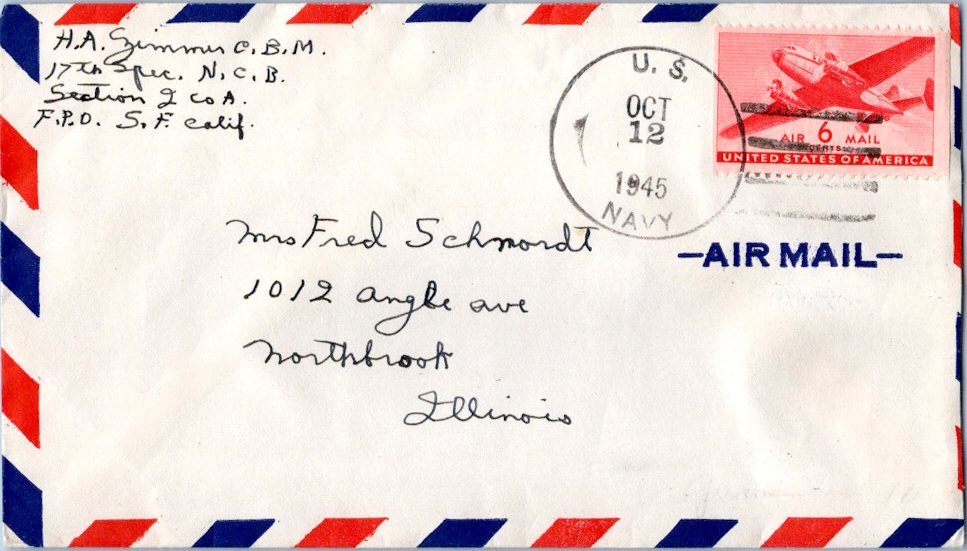 H.A. Zimmer C.B.M.
17th Spec. N.C.B.
Section 2 Co A.
F.P.O. S.F. Calif.
U.S.
OCT
12
1945
NAVY
AIR 6 MAIL
CENTS
UNITED STATES OF AMERICA
-AIR MAIL-
Mrs Fred Schmordt
1012 Angle ave
Northbrook
Illinois